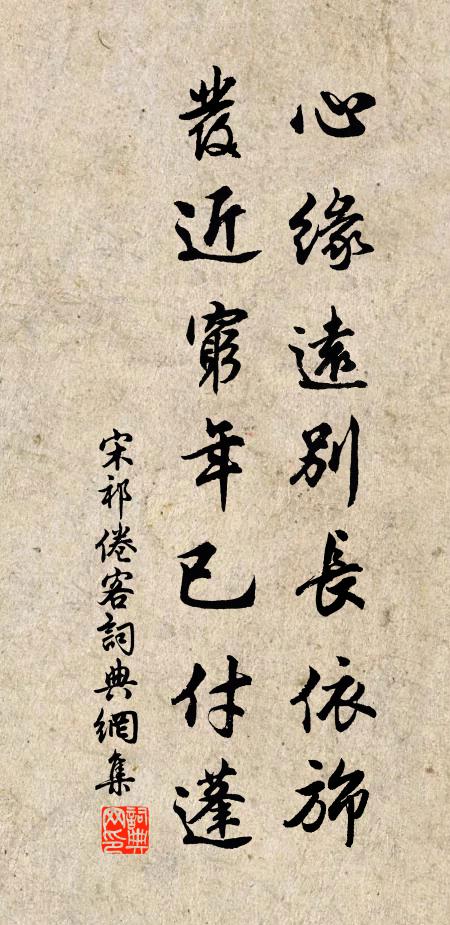 心緣遠別長依旆
發近窮年已付蓬
宋祁倦客詞典網集
詞典网印